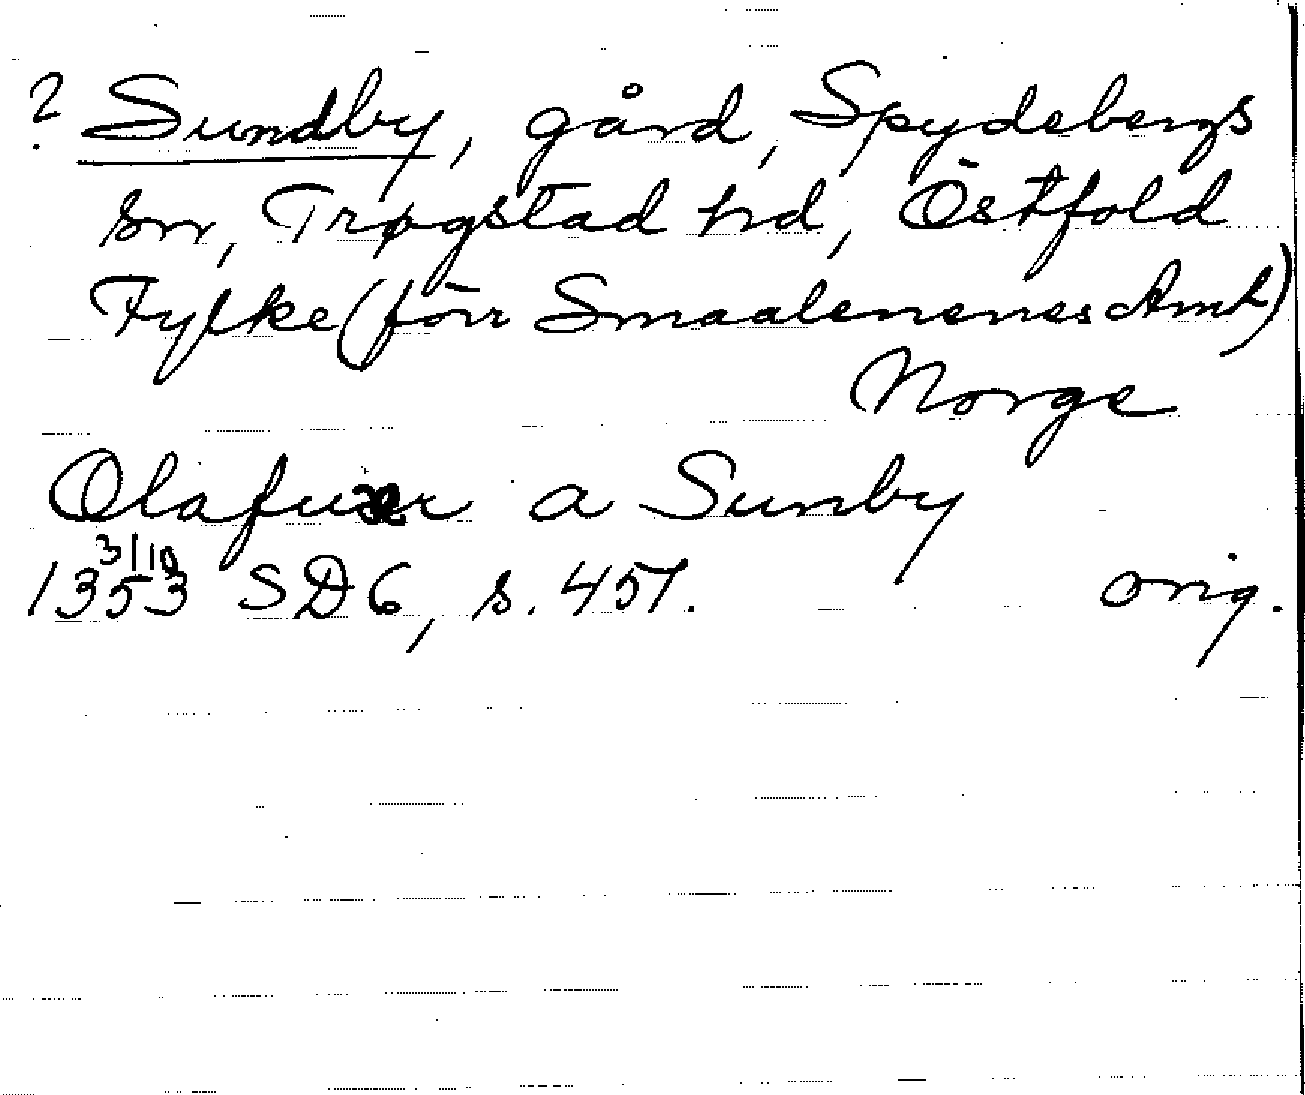 ? Sundby, gård, Spydebergs
sn, Trøgstad hd, Östfold
Fylke (förr Smaalenenes Amt)
Norge
Olafuer a Sunby
3/10
1353 SD6, s. 457. orig.